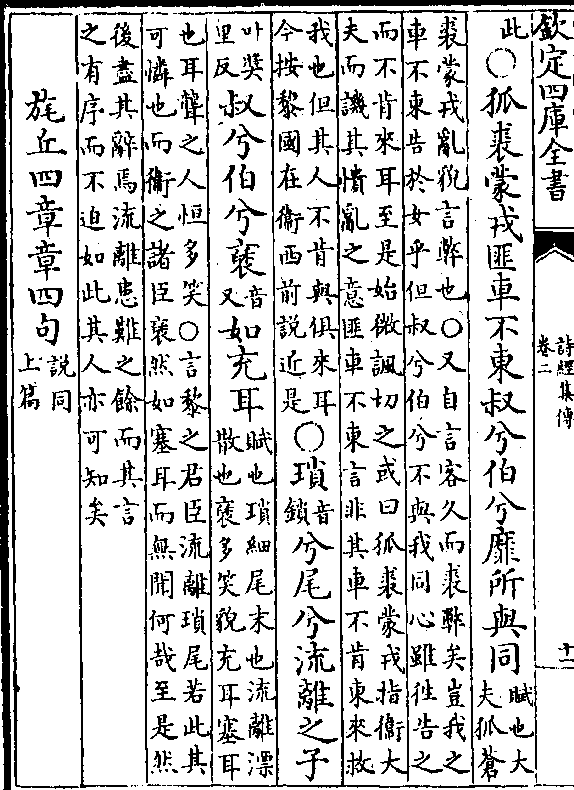 欽定四庫全書
詩經集傳
卷二
此○狐裘蒙戎匪車不東叔兮伯兮靡所與同賦也大
夫狐蒼
裘蒙戎亂貌言弊也○又自言客久而裘弊矣豈我之
車不東告於女乎但叔兮伯兮不與我同心雖徃告之
而不肯來耳至是始微諷切之或曰狐裘蒙戎指衛大
夫而譏其憒亂之意匪車不東言非其車不肯東來救
我也但其人不肯與俱來耳
今按黎國在衛西前說近是
○瑣音鎖兮尾兮流離之子
叶奬里反叔兮伯兮褎音又如充耳賦也瑣細尾末也流離漂
散也褎多笑貌充耳塞耳
也耳聾之人恒多笑○言黎之君臣流離瑣尾若此其
可憐也而衛之諸臣褎然如塞耳而無聞何哉至是然
後盡其辭焉流離患難之餘而其言
之有序而不迫如此其人亦可知矣
旄丘四章章四句說同
上篇